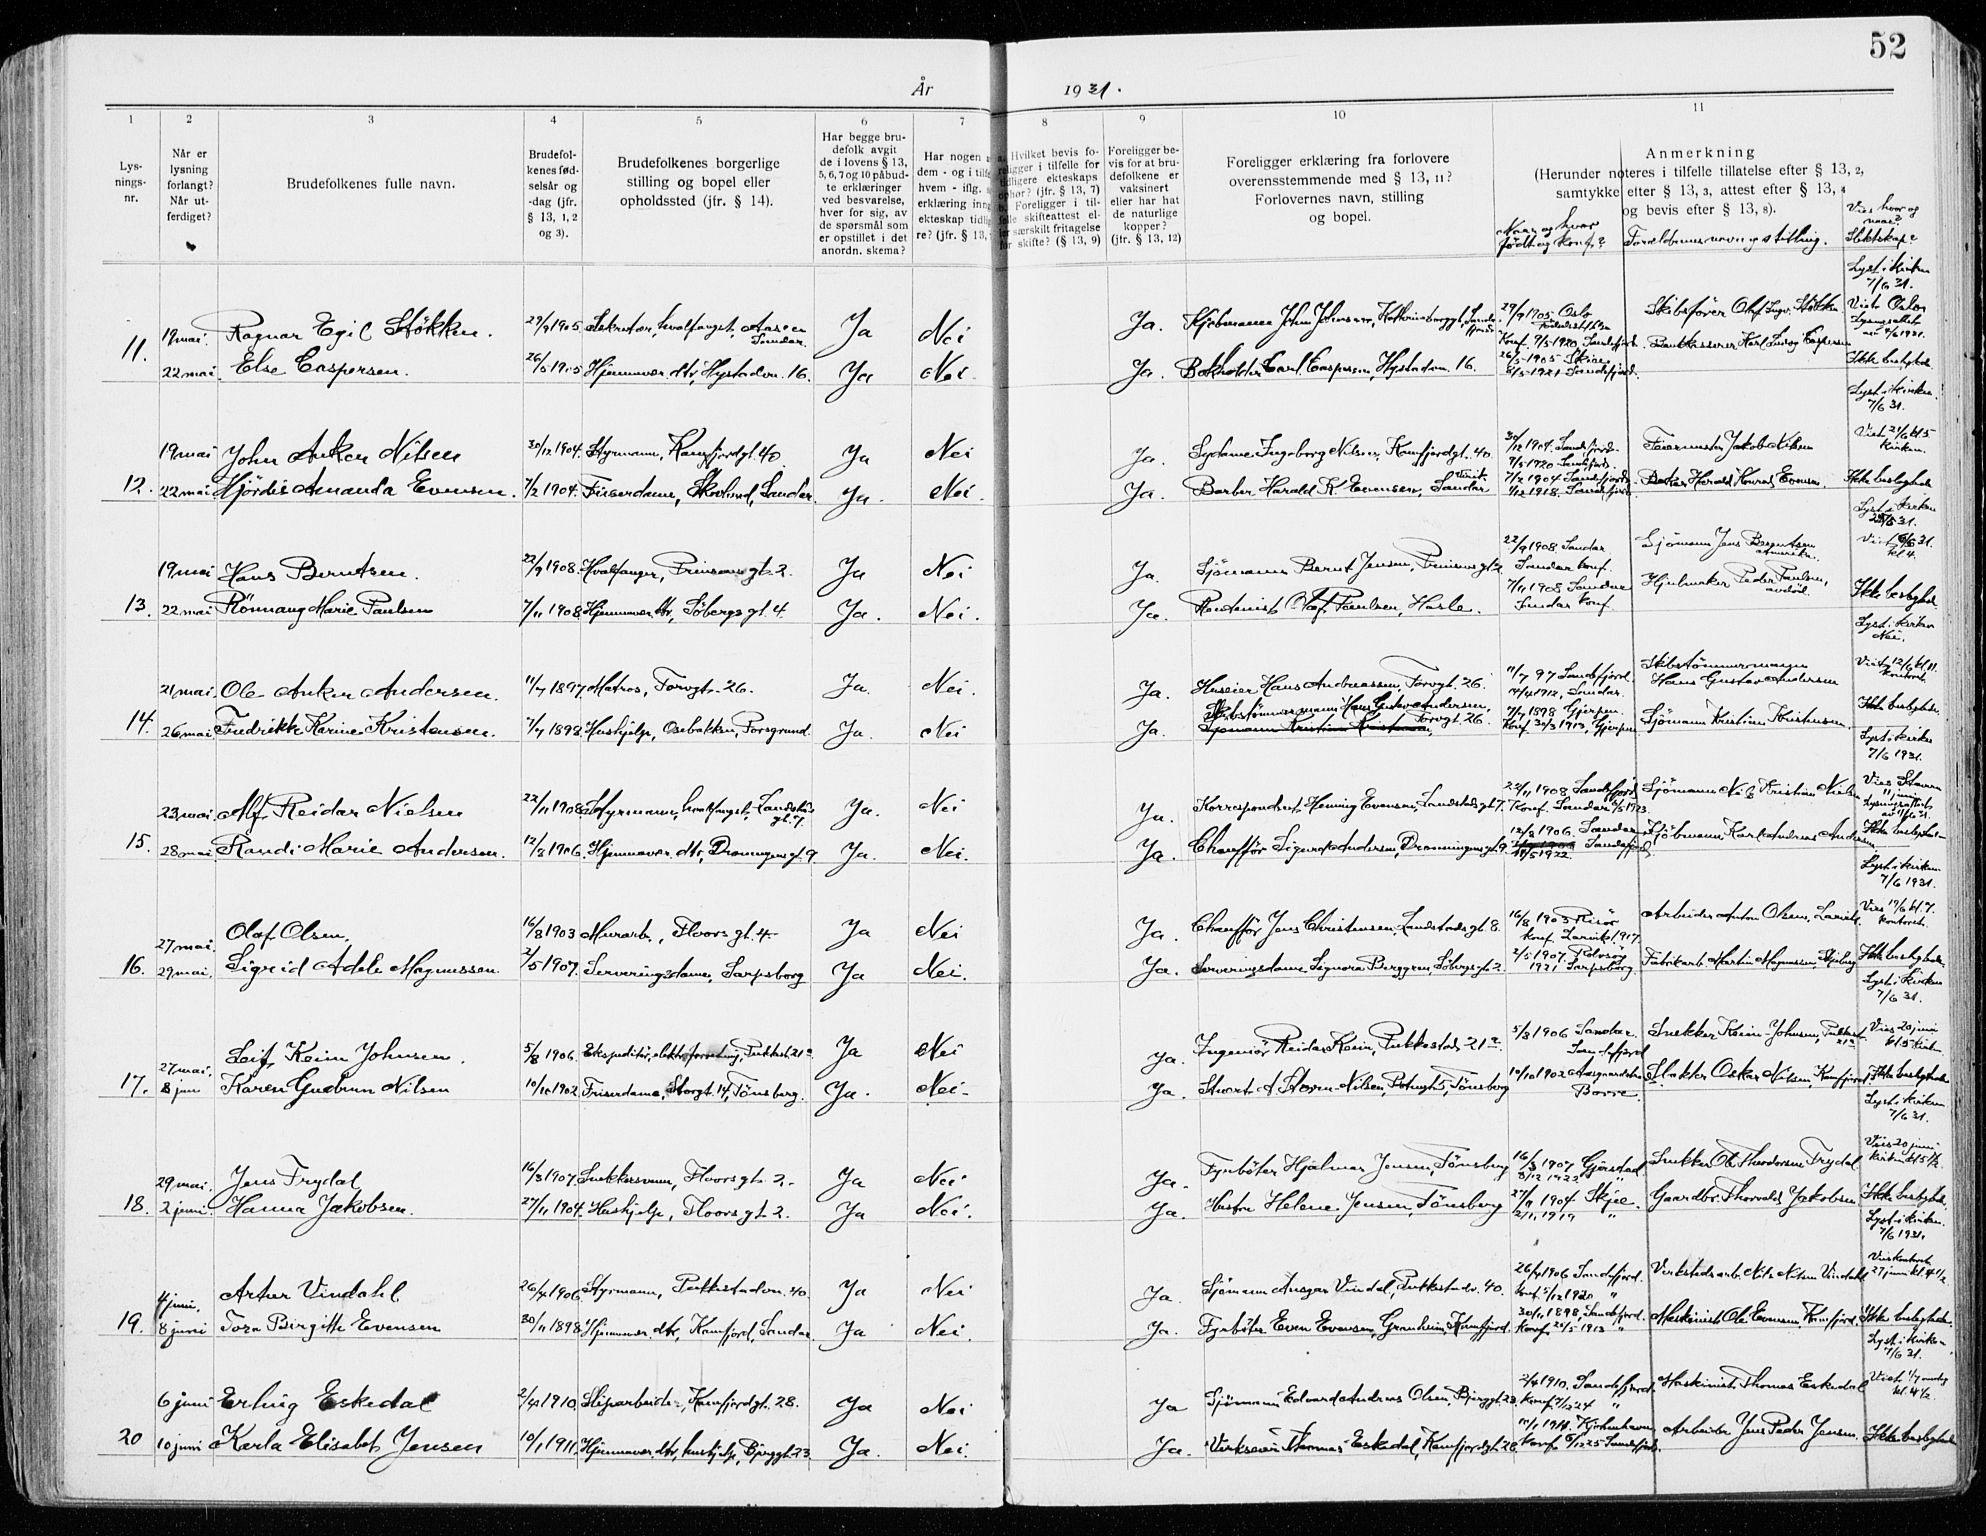 52
År 1931.
1 2 3 4 5 6 7 8 9 10 11
Lys-
nings-
nr.
Når er
lysning
forlangt?
Når ut-
ferdiget?
Brudefolkenes fulle navn.
Brudefol-
kenes fød-
selsår og
-dag (jfr.
§ 13, 1, 2
og 3).
Brudefolkenes borgerlige
stilling og bopel eller
opholdssted (jfr. § 14).
Har begge bru-
defolk avgit
de i lovens § 13,
5, 6, 7 og 10 påbud-
te erklæringer
ved besvarelse,
hver for sig, av
de spørsmål som
er opstillet i det
anordn. skema?
Har nogen a
dem - og i tilfe
hvem - iflg. s
erklæring inng
ekteskap tidlig
re? (jfr. § 13,
Hvilket bevis fo-
religger i tilfelle for
tidligere ekteskaps
ophør? (jfr. § 13, 7)
Foreligger i til-
felle skifteattest el-
ler særskilt fritagelse
for skifte? (§ 13, 9)
Foreligger be-
vis for at bru-
defolkene er
vaksinert
eller har hat
de naturlige
kopper?
(jfr. § 13, 12)
Foreligger erklæring fra forlovere
overensstemmende med § 13, 11?
Forlovernes navn, stilling
og bopel.
Anmerkning
(Herunder noteres i tilfelle tillatelse efter § 13, 2,
samtykke efter § 13, 3, attest efter § 13, 4
og bevis efter § 13, 8).
Naar og hvor
født og konf.?
Forældrenes navn og stilling.
Vies hvor og
naar?
Slektskap?
Lyst i kirken
7/6 31.
11. 19 mai. Ragnar Egil Støkken. 29/9 1905 Sekretær, hvalfangst, Aasen Sandar. Ja Nei Ja. Kjøbmann John Johnsen, 29/9 1905 Oslo Skibsfører Olaf Ingv. Støkken Viet Oslo
Konf. 7/5 1920 Sandefjord
22 mai. Else Caspersen. 26/5 1905 Hjemmev. dtr, Hystadvn. 16. Ja Nei. Ja. Bokholder Carl Caspersen, Hystadvn. 16. 26/5 1905 Skien Ikke beslektede
1921 Sandefjord.
Lyst i kirken.
7/6 31.
12. 19 mai John Anker Nilsen 30/12 1904. Styrmann, Kamfjordgt. 40. Ja Nei Ja. Sydame Ingeborg Nilsen, Kamfjordgt. 40. 30/12 1904. Sandefjord. Jakob Nilsen Viet 21/6 kl. 5
kirken.
7/5 1920 Sandefjord
22 mai Hjördis Amanda Evensen. 7/2 1904. Friserdame, Skovlund, Sandar. Ja. Nei. Ja. Barber Harald K. Evensen, Sandar 7/2 1904 Sandefjord Harald Konrad Evensen. Ikke beslegtede
1918. Sandefjord
Lyst i kirken
31.
13. 19 mai Hans Berntsen. 22/9 1908. Hvalfanger, Prinsens gt. 2. Ja Nei Ja. Sjømann Bernt Jensen, Prinsensgt. 2 22/9 1908. Sandar Sjømann Jens Berntsen Viet 31.
kl. 4.
Sandar konf. Amerika.
22 mai Rönnaug Marie Paulsen 7/11 1908 Hjemmev. dtr, Søbergs gt. 4. Ja. Nei. Ja. Olaf Paulsen, Hasle. 7/11 1908 Sandar Hjulmaker Peder Paulsen, avdød. Ikke beslegtede
Sandar konf.
Lyst i kirken
Nei.
14. 21 mai. Ole Anker Andersen. 11/7 1897. Matros, Torvgt. 26. Ja. Nei. Ja. Huseier Hans Andreassen, Torvgt. 26. 11/7 97 Sandefjord. Skibstømmermann Viet 12/6 kl. 11.
kontoret.
1912, Sandar. Hans Gustav Andersen
Skibstømmermann Hans Gustav Andersen,
Torvgt. 26.
26 mai Fredrikke Karine Kristensen. 7/7 1898. Hushjelp, Osebakken, Porsgrund. Ja. Nei Ja. Sjømann Kristian Kristensen, 7/7 1898 Gjerpen. Sjømann Kristian Kristensen. Ikke beslegtede.
Konf. 30/3 1913, Gjerpen
Lyst i kirken
7/6 1931.
15. 23 mai. Alf Reidar Nielsen 22/11 1908. Styrmann, hvalfangst, Landstads gt. 7. Ja. Nei Ja. Korrespondent Henning Evensen, Landstads gt. 7. 22/11 1908. Sandefjord Sjømann Nils Kristian Nielsen Vies Stavern
11 juni
Konf. Sandar 1923.
28 mai Randi Marie Andersen. 12/8 1906. Hjemmev. dtr, Dronningens gt. 9 Ja. Nei. Ja. Chaufför Sigurd Andersen, Dronningens gt. 9. 12/8 1906. Sandar Kjøbmann Karl Andreas Andersen. Ikke beslegtede
1922. Sandefjord
Lyst i kirken
7/6 1931.
16. 27 mai. Olaf Olsen. 16/8 1903 Murarb., Thorsgt. 4. Ja Nei Ja. Chaufför Jens Christensen, Landstads gt. 8. 16/8 1903 Risør Arbeider Anton Olsen, Larvik. Vies 17/6 kl. 7.
kontoret.
konf. Larvik 1917.
29 mai. Sigrid Adele Magnussen 2/5 1907. Serveringsdame, Sarpsborg Ja Nei. Ja. Serveringsdame Signora Berggren, Søbergs gt. 2. 2/5 1907. Rolvsøy Fabrikarb. Martin Magnussen, Ikke beslegtede.
1921 Sarpsborg.
Lyst i kirken
7/6 31.
17. 27 mai. Leif Keim Johnsen. 5/8 1906. Ekspeditør, elektr. forretning, Pukkest. 21a Ja Nei Ja. Ingeniør Reidar Keim, Pukkestad 21a. 5/8 1906 Sandar. Snekker Keim-Johnsen, Pukkest. 21a Vies 20 juni
kl. 5 kirken.
Sandefjord
8 jun Karen Gudrun Nilsen 10/10 1902. Friserdame, Storgt. 14, Tønsberg. Ja. Nei. Ja. Stuert A. Steen-Nilsen, Tønsberg 10/10 1902 Aasgaardstrand Slakter Oskar Nilsen, Kamfjord. Ikke beslegtede
Borre.
Lyst i kirken
7/6 31.
18. 29 mai. Jens Frydal 16/3 1907. Snekkersvenn, Thorsgt. 2. Ja Nei Ja. Fyrbøter Hjalmar Jensen, Tønsberg 16/3 1907 Gjerstad Snekker Ole Theodorsen Frydal Vies 20 juni
kirken kl. 5 1/2.
1922 "
2 juni. Hanna Jakobsen. 27/11 1904. Hushjelp, Thorsgt. 2. Ja Nei. Ja. Hustru Helene Jensen, Tønsberg 27/11 1904 Skjee. Gaardbr. Thorvald Jakobsen Ikke beslegtede.
1919 "
Lyst i kirken.
7/6 1931.
19. 4 juni. Artur Vindahl 26/4 1906. Styrmann, Pukkestadvn. 40. Ja Nei Ja. Sjømann Ansgar Vindal, Pukkestadv. 40. 26/4 1906 Sandefjord. Verkstedsarb. Nils Nilsen Vindahl Vies kontoret
27 juni kl. 4 1/2.
Konf. 1920 "
8 juni Tora Birgitte Evensen 30/11 1898. Hjemmev. dtr, Kamfjord, Sandar. Ja Nei. Ja. Fyrbøter Even Evensen, Granheim, Kamfjord. 30/11 1898, Sandefjord. Maskinist Ole Evensen, Kamfjord. Ikke beslegtede.
Konf. 1913 "
Lyst i kirken
7/6 31.
20 6 juni Erling Eskedal 2/4 1910. Sliparbeider, Kamfjordgt. 28. Ja Nei Ja Sjømann Edvard Andreas Olsen, Bjerggt. 23. 2/4 1910. Sandefjord Maskinist Thomas Eskedal Viet 1/7
kl. 4 1/2.
Konf. 24 "
10 juni Karla Elisabet Jensen 10/1 1911. Hjemmev. dtr, hushjelp, Bjerggt. 23. Ja. Nei. Ja. Verkseier Thomas Eskedal, Kamfjordgt. 28. 10/1 1911. Kjøbenhavn Arbeider Jens Peder Jensen. Ikke beslegtede
Konf. 25 Sandefjord.